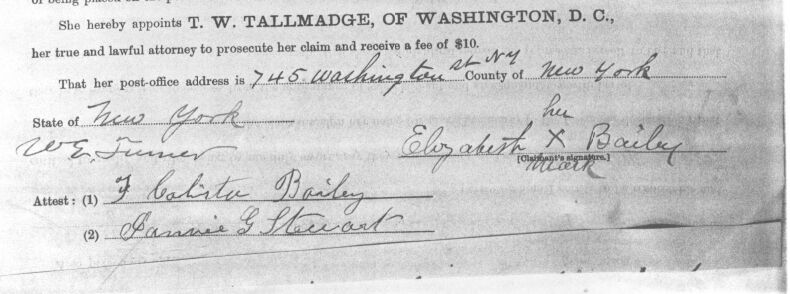 She hereby appoints T. W. TALLMADGE, OF WASHINGTON, D. C.,
her true and lawful attorney to prosecute her claim and receive a fee of $10.
That her post-office address is 745 Washington St NY County of New York
State of New York
her
W E. Turner Elizabeth X Bailey
[Claimant's signature.]
mark
Attest: (1) F Calista Bailey
(2) Fannie G Stewart